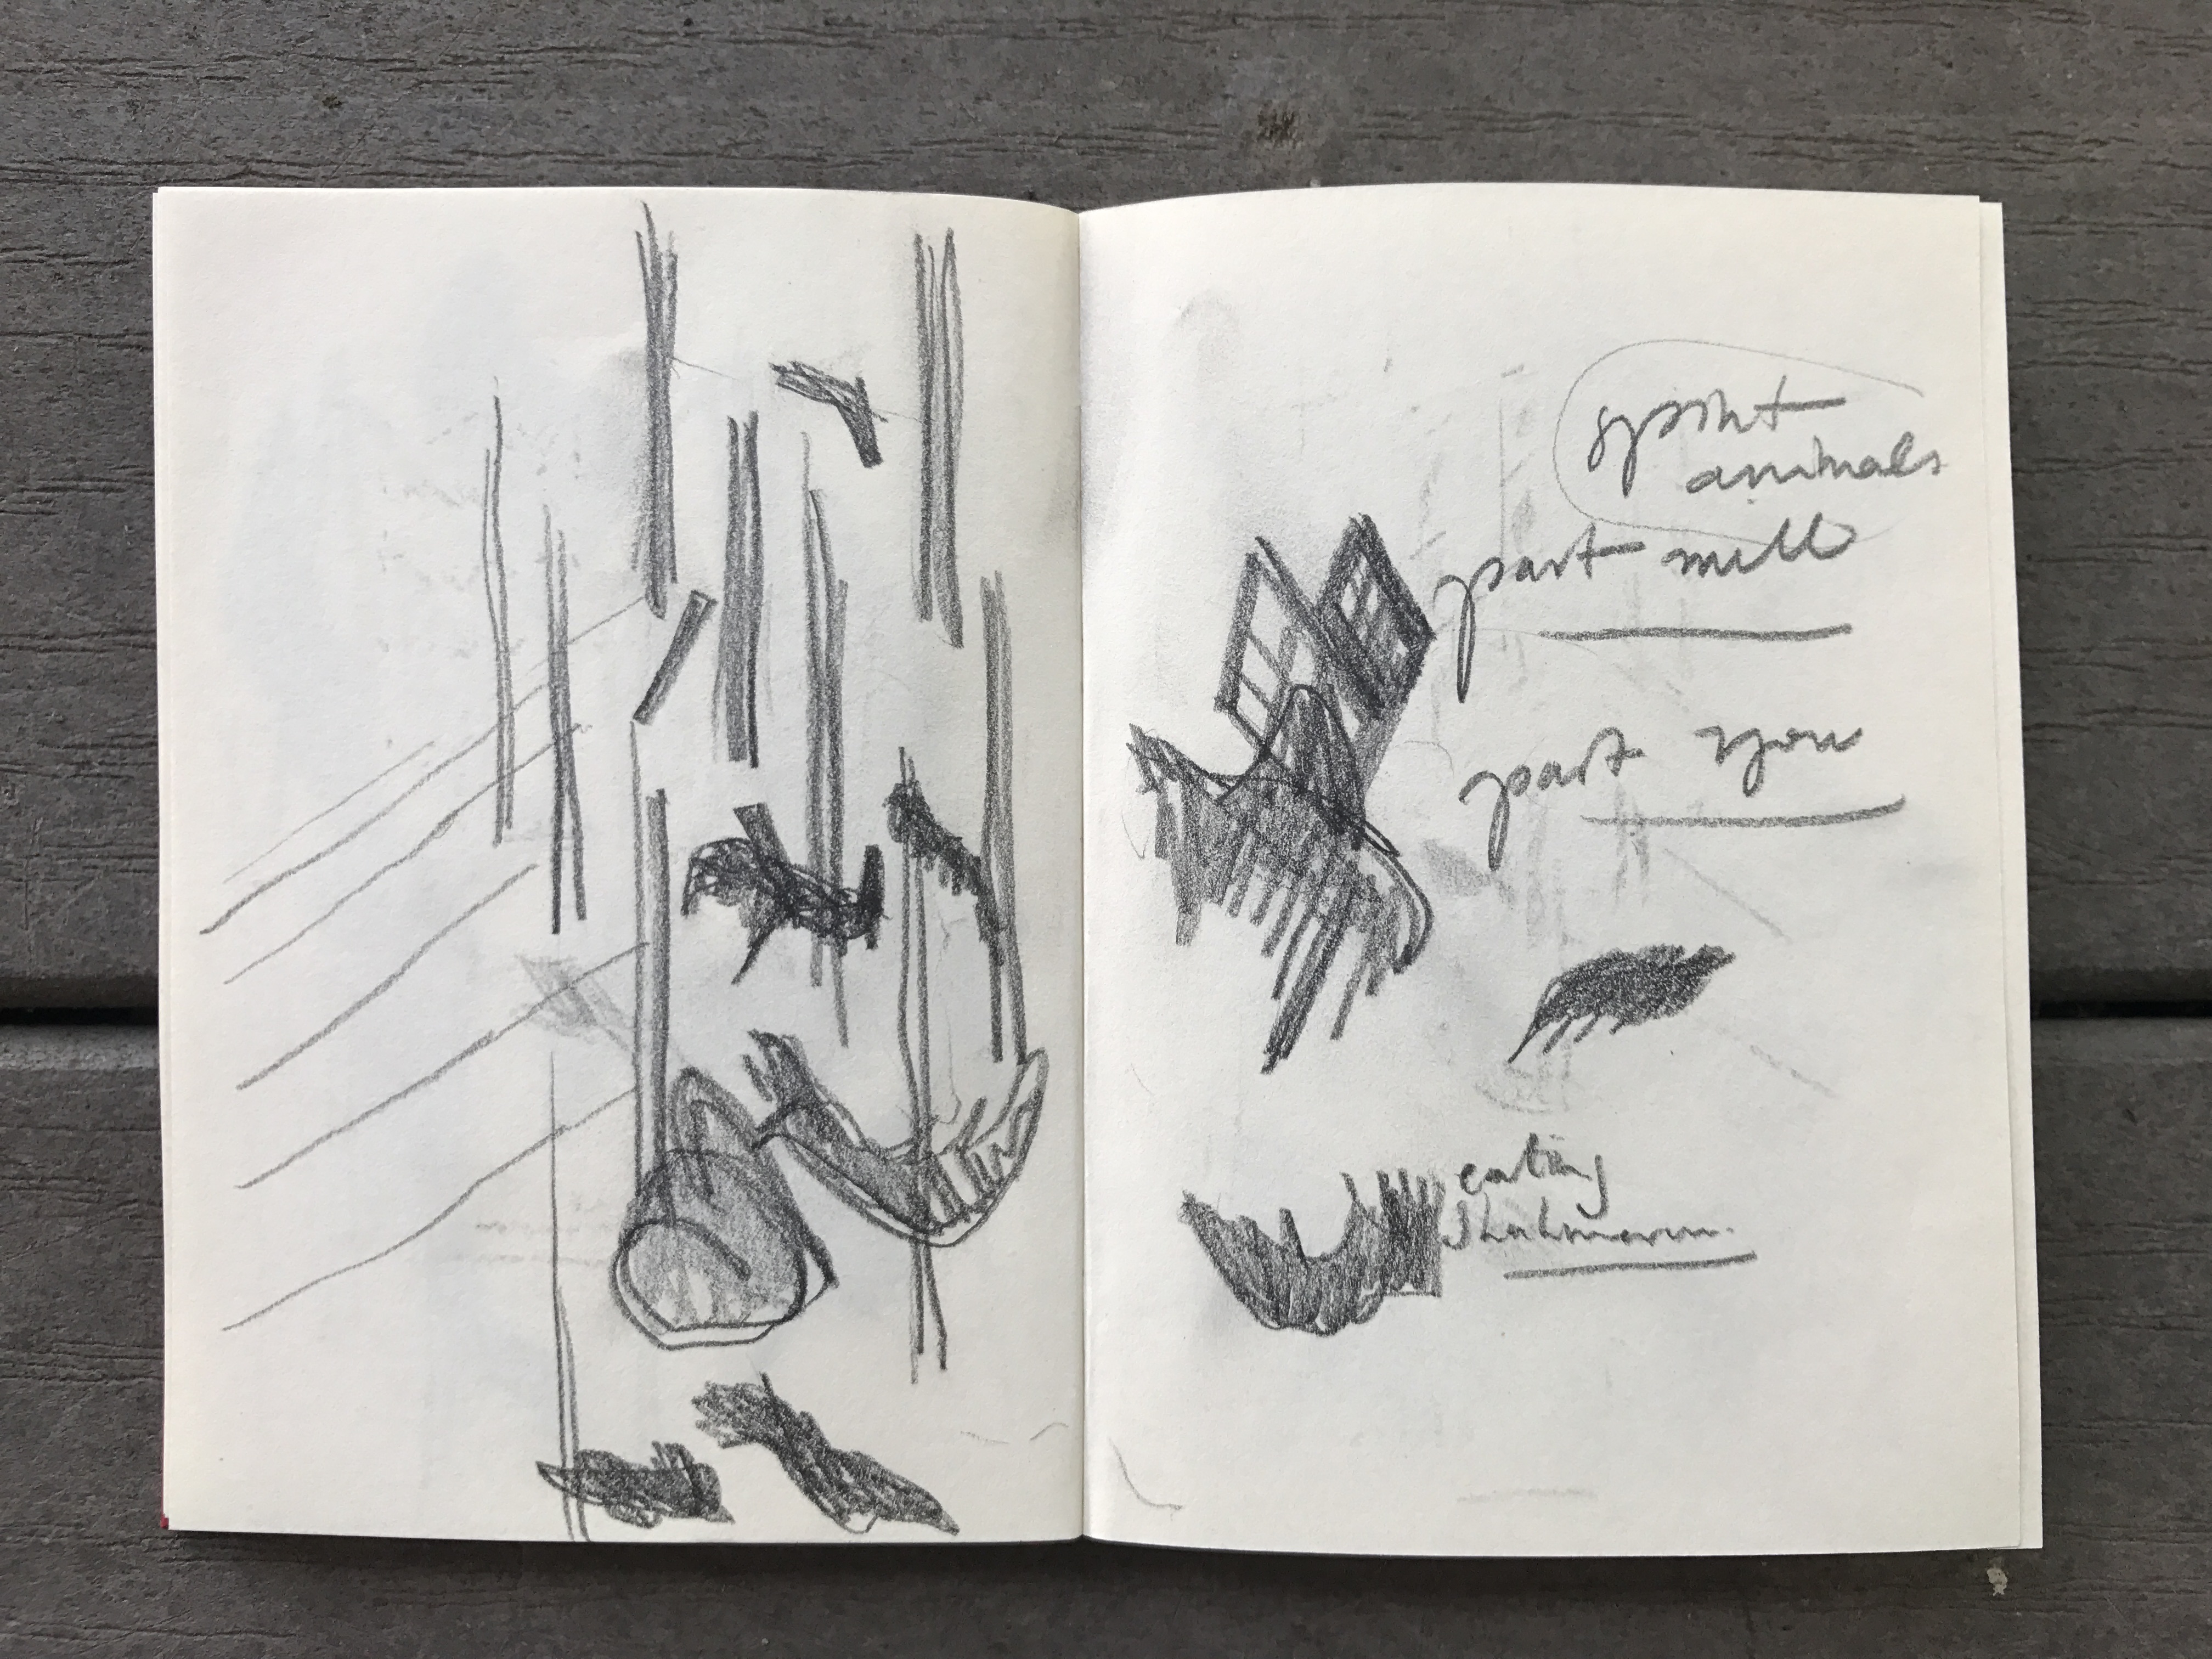 spirit
animals
part mill
part you
eating